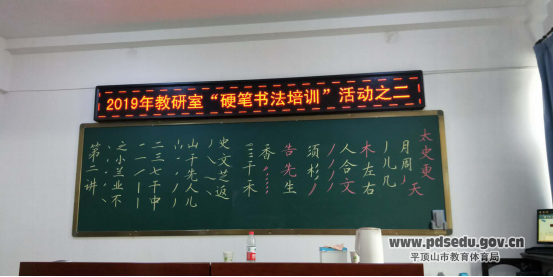 2019年教研室“硬笔书法培训”活动之二
第二讲
之小兰业不
一二三七千中
山千先人儿
史文芝返
三千禾
香
告先生
须杉
人合文
木左右
月周
儿几
太史更天
www.pdsedu.gov.cn
平顶山市教育体育局